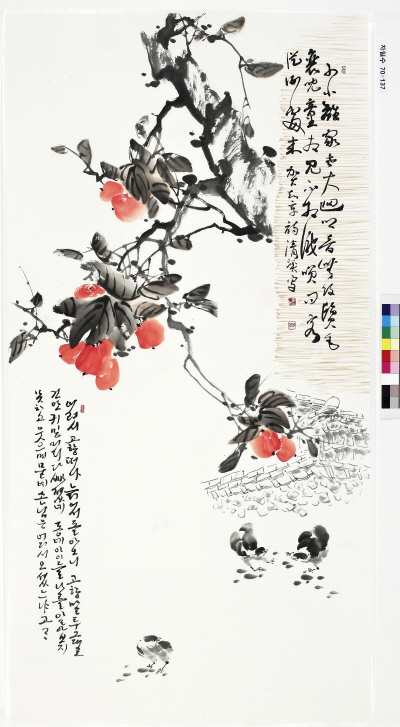 少小離家老大回鄉音無改鬢毛
衰兒童相見不相識笑問客
從何處來 賀知章詩
어려서 고향 떠나 늙어서 돌아오니 고향 말투 그대로
건만 귀밑머리 다 동네 아이들 나를 알아보지
못하고 웃으며 묻네 손님은 어디서 오셨느냐고
70-137